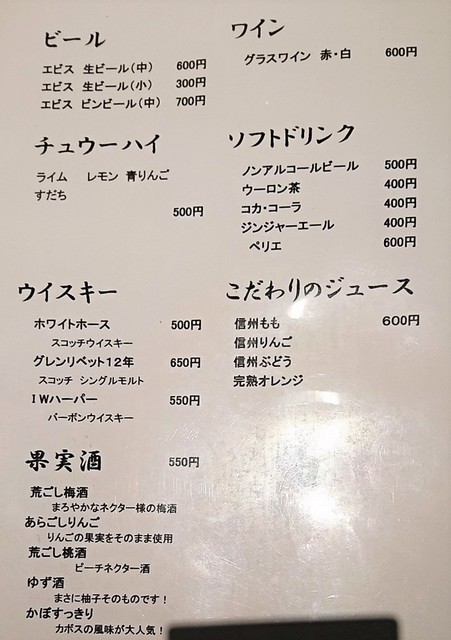 ビール
エビス 生ビール(中) 600円
エビス 生ビール(小) 300円
エビス ビンビール(中) 700円
チュウーハイ
ライム レモン 青りんご
すだち
500円
ウイスキー
ホワイトホース 500円
スコッチウイスキー
グレンリベット12年 650円
スコッチ シングルモルト
IWハーパー 550円
バーボンウイスキー
果実酒 550円
荒ごし梅酒
まろやかなネクター様の梅酒
あらごしりんご
りんごの果実をそのまま使用
荒ごし桃酒
ピーチネクター酒
ゆず酒
まさに柚子そのものです!
かぼすっきり
カボスの風味が大人気!
ワイン
グラスワイン 赤・白 600円
ソフトドリンク
ノンアルコールビール 500円
ウーロン茶 400円
コカ・コーラ 400円
ジンジャーエール 400円
ペリエ 600円
こだわりのジュース
信州もも 600円
信州りんご
信州ぶどう
完熟オレンジ